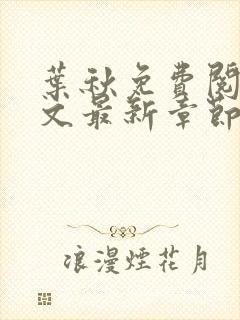 葉秋免費閱
文最新章節
浪漫煙花月